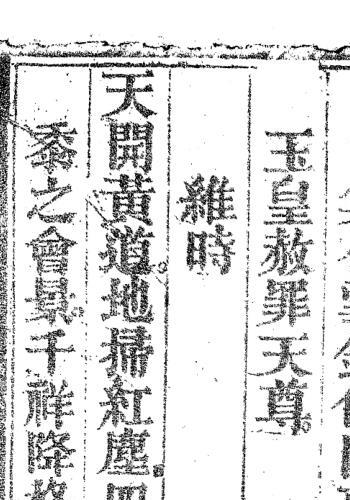 玉皇赦罪天尊。
維時
天開黃道。地掃紅塵。
黍之會景。千祥降